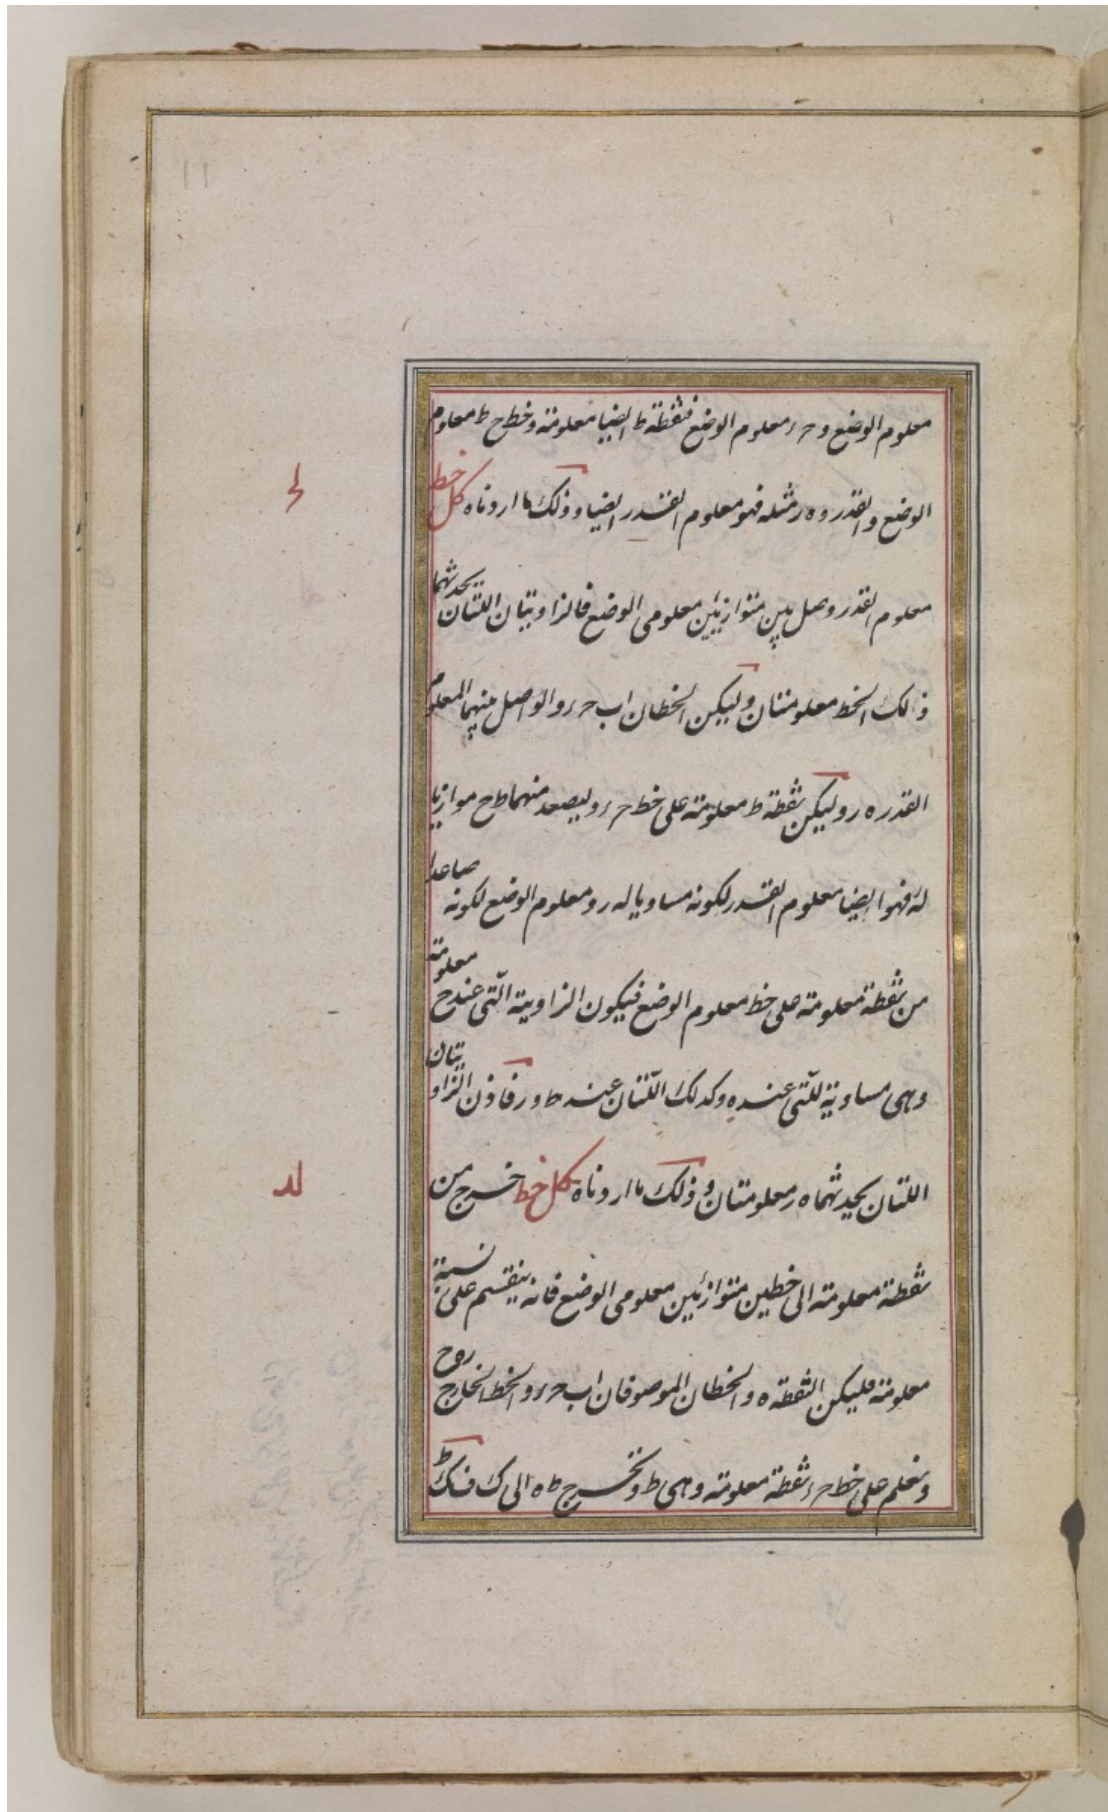 ١١
معلوم الوضع و حء معلوم الوضع فنقطة ط ايضا معلومة وخط ح ط معلوم
الوضع والقدر و ه ر مثله فهو معلوم القدر ايضا وذلك ما اردناه كل خط
لح
معلوم القدر وصل بين متوازيين معلومى الوضع فالزاويتان اللتان يحدثهما
ذالك الخط معلومتان وليكن الخطان اب حء والواصل بينهما المعلوم
القدر ه ر وليكن نقطة ط معلومة على خط حء وليصعد منهما ط ح موازيا
له فهو ايضا معلوم القدر لكونه مساويا له ر ومعلوم الوضع لكونه صاعدا
من نقطة معلومة على خط معلوم الوضع فيكون الزاوية الّتى عند ح معلومة
وهى مساوية للّتى عند ه وكذلك اللّتان عند ط و ر فاذن الزاويتان
اللتان يحدثهما ه ر معلومتان وذلك ما اردناه كل خط خرج من
لد
نقطة معلومة الى خطين متوازيين معلومى الوضع فانه ينقسم على نسبة
معلومة فليكن النقطة ه والخطان الموصوفان اب حء والخط الخارج ه ر ح
ونعلم على خط حء نقطة معلومة وهى ط ونخرج ط ه الى ك فـ ك ط